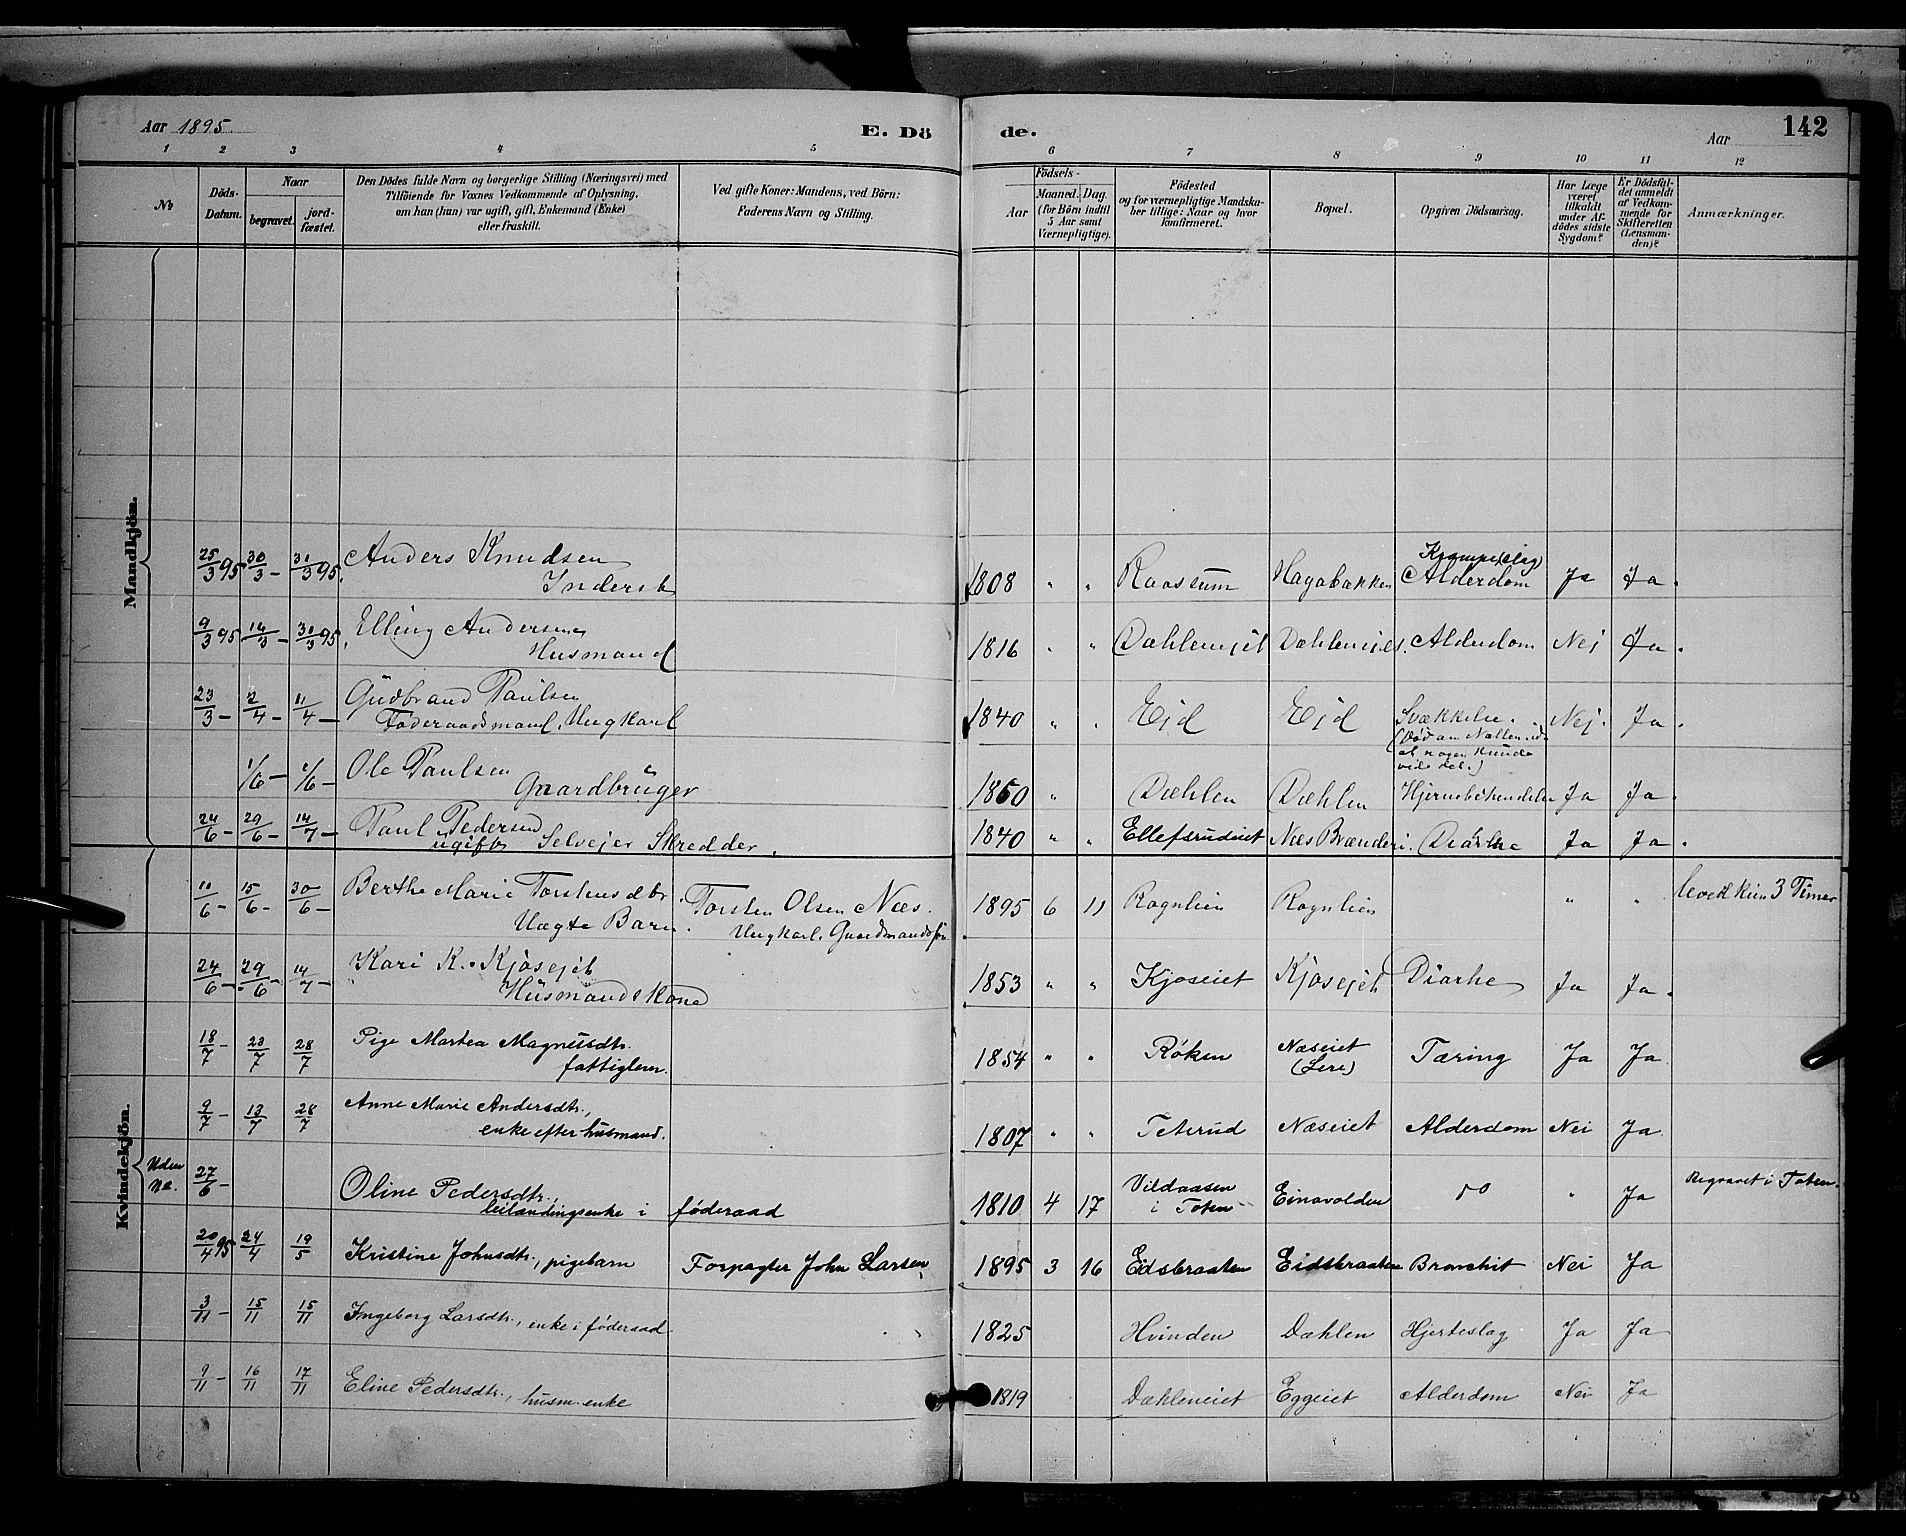 Aar 1895.
E. Dö
de.
Aar
142
1 2 3 4 5 6 7 8 9 10 11 12
No
Döds-Datum.
Naar
begravet.
jord-fæstet.
Den Dödes fulde Navn og borgerlige Stilling (Næringsvei) med
Tilföiende for Voxnes Vedkommende af Oplysning,
om han (hun) var ugift, gift, Enkemand (Enke)
eller fraskilt.
Ved gifte Koner: Mandens, ved Börn:
Faderens Navn og Stilling.
Födsels-
Aar
Maaned. Dag.
(for Börn indtil
5 Aar samt
Værnepligtige).
Födested
og for værnepligtige Mandska-
ber tillige: Naar og hvor
konfirmeret.
Bopæl.
Opgiven Dödsaarsag.
Har Læge
været
tilkaldt
under Af-
dödes sidste
Sygdom?
Er Dödsfal-
det anmeldt
af Vedkom-
mende for
Skifteretten
(Lensman-
den)?
Anmærkninger.
Mandkjön.
Krampe(slag)
25/3 95 30/3 - 31/3 95. Anders Knudsen 1808 " " Raassum Hagabakken Alderdom Ja Ja.
Inderst
9/3 95 14/3 - 31/3 95. Elling Andersen 1816 " " Dæhlenejet Dæhlenejet. Alderdom Nej Ja.
Husmand
23/3 - 2/4 - 11/4 - Gudbrand Paulsen 1840 " " Ejd Ejd Svækkelse. Nej. Ja.
Føderaadsmand, Ungkarl
(Død om Natten uden
at nogen kunde
vide det.)
1/6 - 2/6 - Ole Paulsen 1860 " Dæhlen Dæhlen Hjernebetændelse Ja Ja.
Gaardbruger
24/6 - 29/6 - 14/7 - Paul Pedersen 1840 " " Ellefsrudeiet Næs Brænderi. Diarhe Ja Ja.
ugift Selvejer Skredder.
Kvindekjön.
11/6 - 15/6 - 30/6 - Berthe Marie Torstensdtr. Torsten Olsen Næs. 1895 6 11 Rognlien Rognlien " " leved kun 3 Timer
Uægte Barn. Ungkarl. Gaardmandssøn
24/6 - 29/6 - 14/7 - Kari K. Kjosejet 1853 " " Kjoseiet Kjosejet Diarhe Ja Ja.
Husmandskone
18/7 - 23/7 28/7 Pige Martea Magnusdtr. 1854 " " Røken Næseiet Tæring Ja Ja
fattiglem. (Lere)
9/7 - 13/7 28/7 Anne Marie Andersdtr., 1807 " " Teterud Næseiet Alderdom Nei Ja
enke efter husmand.
Uden No. 27/6 - Oline Pedersdtr., 1810 4 17 Vildaasen Einavolden do " Ja Begravet i Toten.
leilændingsenke i føderaad i Toten
20/4 95 24/4 19/5 Kristine Johnsdtr., pigebarn Forpagter John Larsen 1895 3 16 Eidsbraaten Eidsbraaten Bronchit Nei Ja
3/11 - 15/11 15/11 Ingeborg Larsdtr., enke i føderaad. 1825 Hvinden Dæhlen Hjerteslag Ja Ja
9/11 - 16/11 17/11 Eline Pedersdtr., husm. enke 1819 Dæhleneiet Eggeiet Alderdom Nei Ja